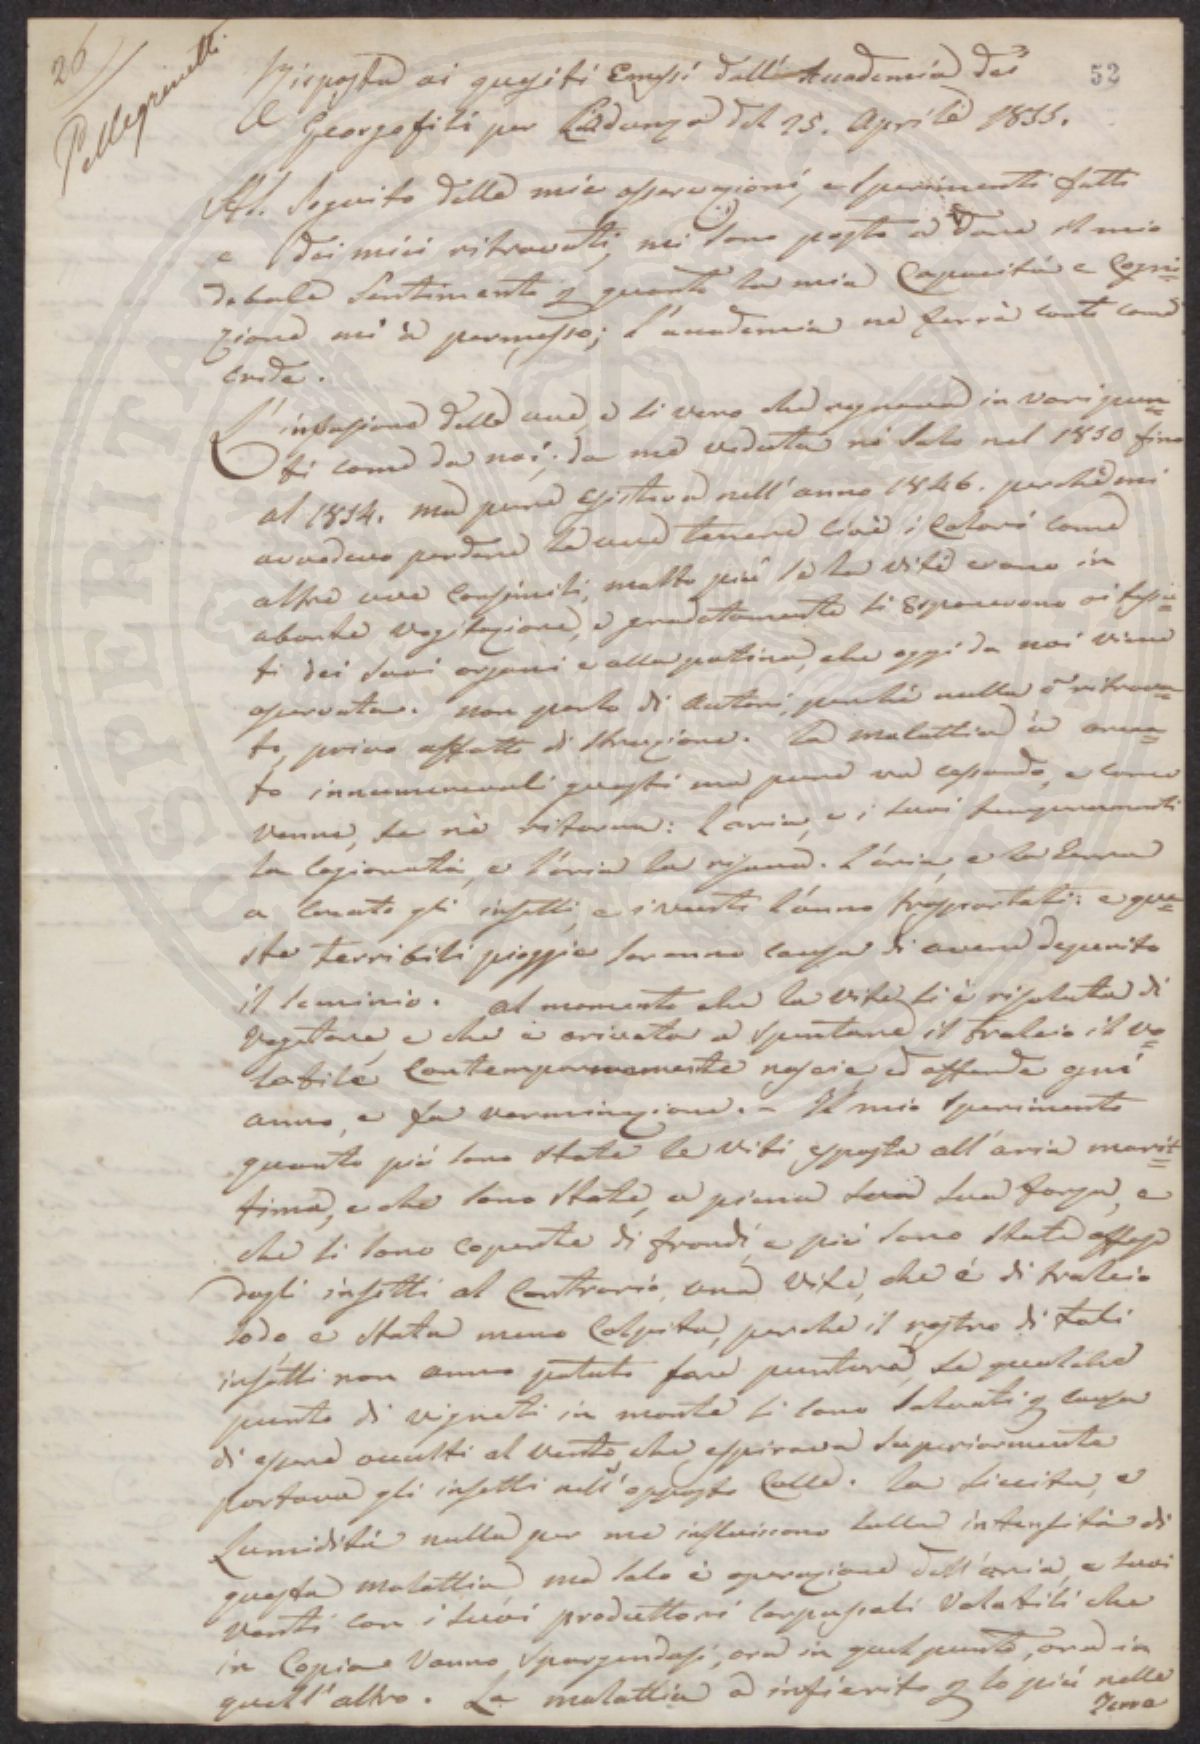 26
Pellegrinetti
52
Risposta ai quesiti Emessi dall'Accademia dei
Georgofili per Ladunza del 25. Aprile 1855.
Al. Seguito delle mie osservazioni, e sperimenti fatti
e dei miei ritrovati, mi sono posto a dare il mio
debole Sentimento p quanto la mia Capacità e Cogni=
zione mi à permesso; l'accademia ne farrà conto come
crede.
L'invasione delle uve, e li vero che regnava in vari pun=
ti come da noi; da me veduta nò Solo nel 1850 fino
al 1854. ma pure esisteva nell'anno 1846. perchè mi
avvedevo perdere le uve tenere cioè i Colori come
altre uve Consimili, molto più se le viti erano in
abonte vegitazione, e gradatamente si
ti dei suoi organi e alla patina, che oggi da noi viene
osservata. non parlo di Autori, perchè nulla ò ritrova=
to, privo affatto di struzione. La malattia à areca=
to innumerevoli guasti ma pure va cessando, e come
venne, se nè ritorna: l'aria, e i suoi temperamenti
la cagionata, e l'aria la risana. l'aria, e la terra
a creato gli insetti, e i venti l'anno trasportati: e que=
ste terribili pioggie saranno causa di avere deperito
il seminio. al momento che la vite si è risoluta di
Vegetare, e che è arivata a spuntare il tralcio il vo=
latile Contemporaneamente nascie, ed offende ogni
anno, e fa verminazione. - Il mio sperimento
quanto più sono state le viti esposte all'aria marit=
tima, e che sono state, a piena sua forza, e
che si sono coperte di frondi, e più sono state offese
dagli insetti al Contrario, una vite, che è di tralcio
sodo e stata meno Colpita, perche il rostro di tali
insetti non anno potuto fare puntura, se qualche
punto di vigneti in monte si sono salvati p causa
di essere occulti al vento, che espirava superiormente
portava gli insetti nell'opposto Colle. la siccita, e
Lumidità nulla per me influiscono sulla intensità di
questa malattia ma solo è operazione dell'aria, e suoi
venti con i suoi produttori corpuscoli Volatili che
in Copia Vanno spargendosi, ora in quel punto, ora in
quell'altro. La malattia à infierito p lo più nelle
Terre